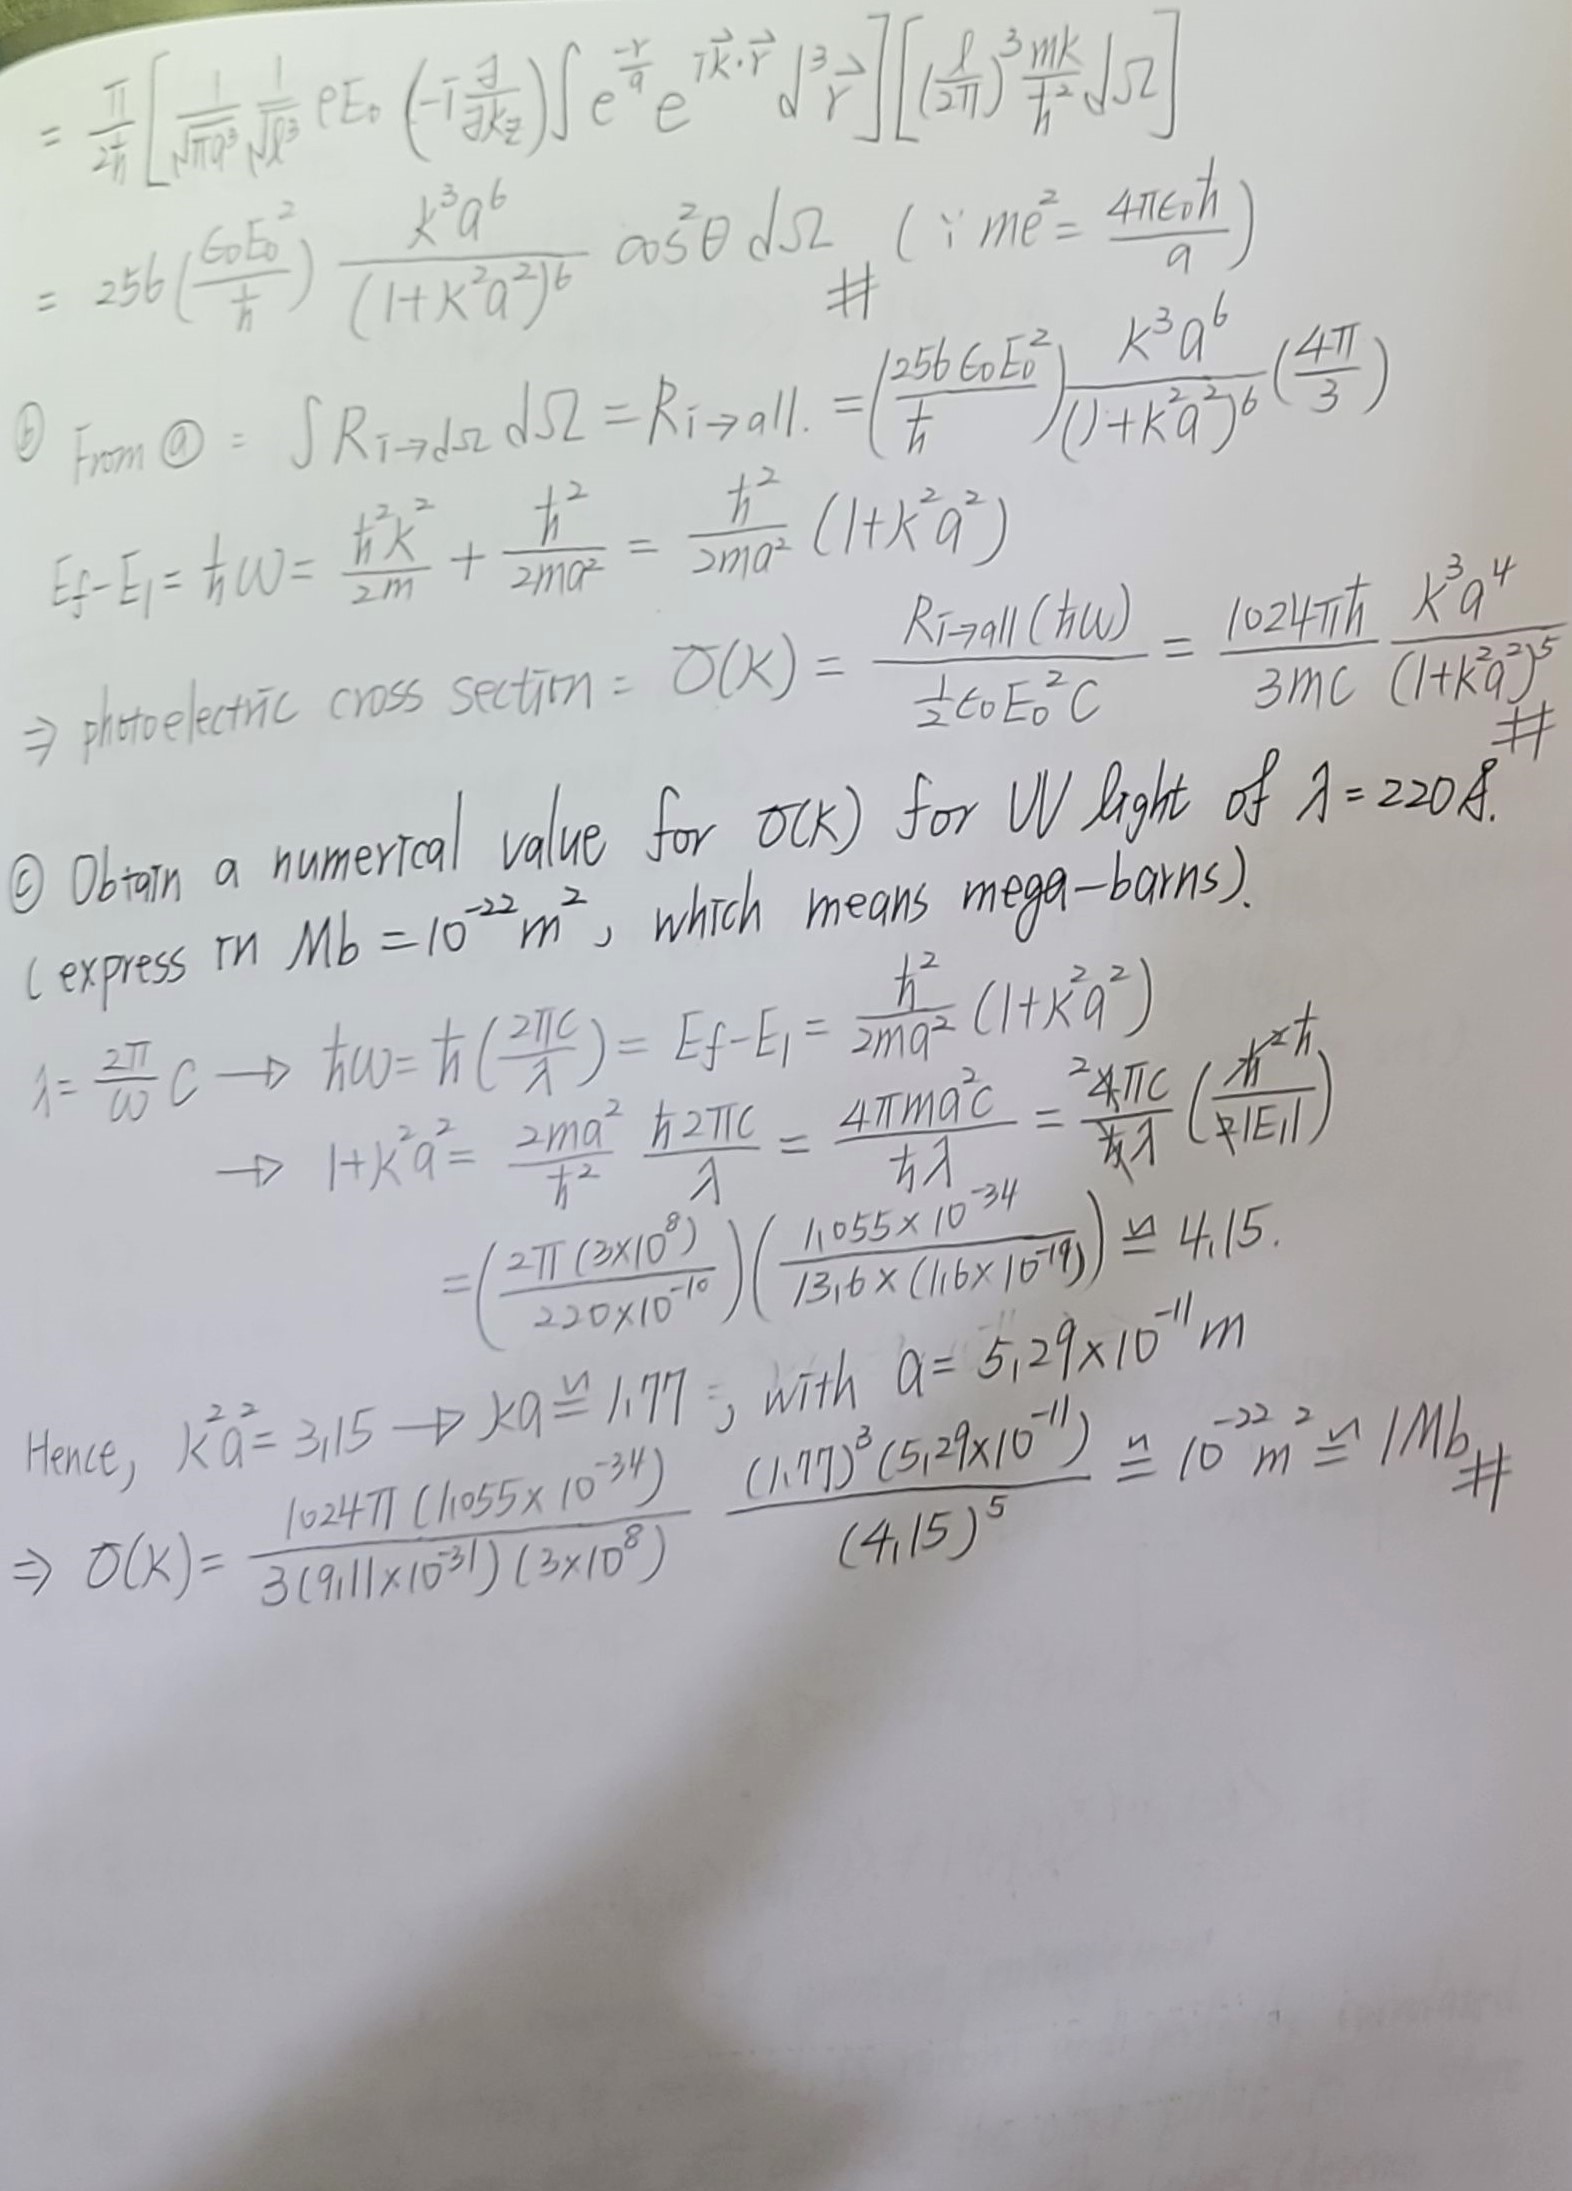 = π/2ħ [1/√πa³ 1/√l³ eE₀ (-i ∂/∂k_z) ∫ e^(-r/a) e^(i k⃗·r⃗) d³r⃗] [(l/2π)³ mk/ħ² dΩ]
= 256 (ϵ₀E₀²/ħ) k³a⁶/(1+k²a²)⁶ cos²θ dΩ # (∵ me² = 4πϵ₀ħ/a)
ⓑ From ⓐ = ∫ R_i→dΩ dΩ = R_i→all. = (256 ϵ₀E₀²/ħ) k³a⁶/(1+k²a²)⁶ (4π/3)
E_f-E₁ = ħω = ħ²k²/2m + ħ²/2ma² = ħ²/2ma² (1+k²a²)
⇒ photoelectric cross section = σ(k) = R_i→all (ħω)/(½ϵ₀E₀²c) = 1024πħ/3mc k³a⁴/(1+k²a²)⁵ #
ⓒ Obtain a numerical value for σ(k) for UV light of λ = 220 Å.
(express in Mb = 10⁻²² m², which means mega-barns).
λ = 2π/ω c → ħω = ħ(2πc/λ) = E_f-E₁ = ħ²/2ma² (1+k²a²)
→ 1+k²a² = 2ma²/ħ² ħ2πc/λ = 4πma²c/ħλ = 2 4πc/ħλ (ħ² ħ/2|E₁|)
= (2π(3×10⁸)/220×10⁻¹⁰) (1.055×10⁻³⁴/13.6×(1.6×10⁻¹⁹)) ≌ 4.15.
Hence, k²a² = 3.15 → ka ≌ 1.77 , with a = 5.29×10⁻¹¹ m
⇒ σ(k) = 1024π(1.055×10⁻³⁴)/3(9.11×10⁻³¹)(3×10⁸) (1.77)³(5.29×10⁻¹¹)/(4.15)⁵ ≌ 10⁻²² m² ≌ 1Mb #